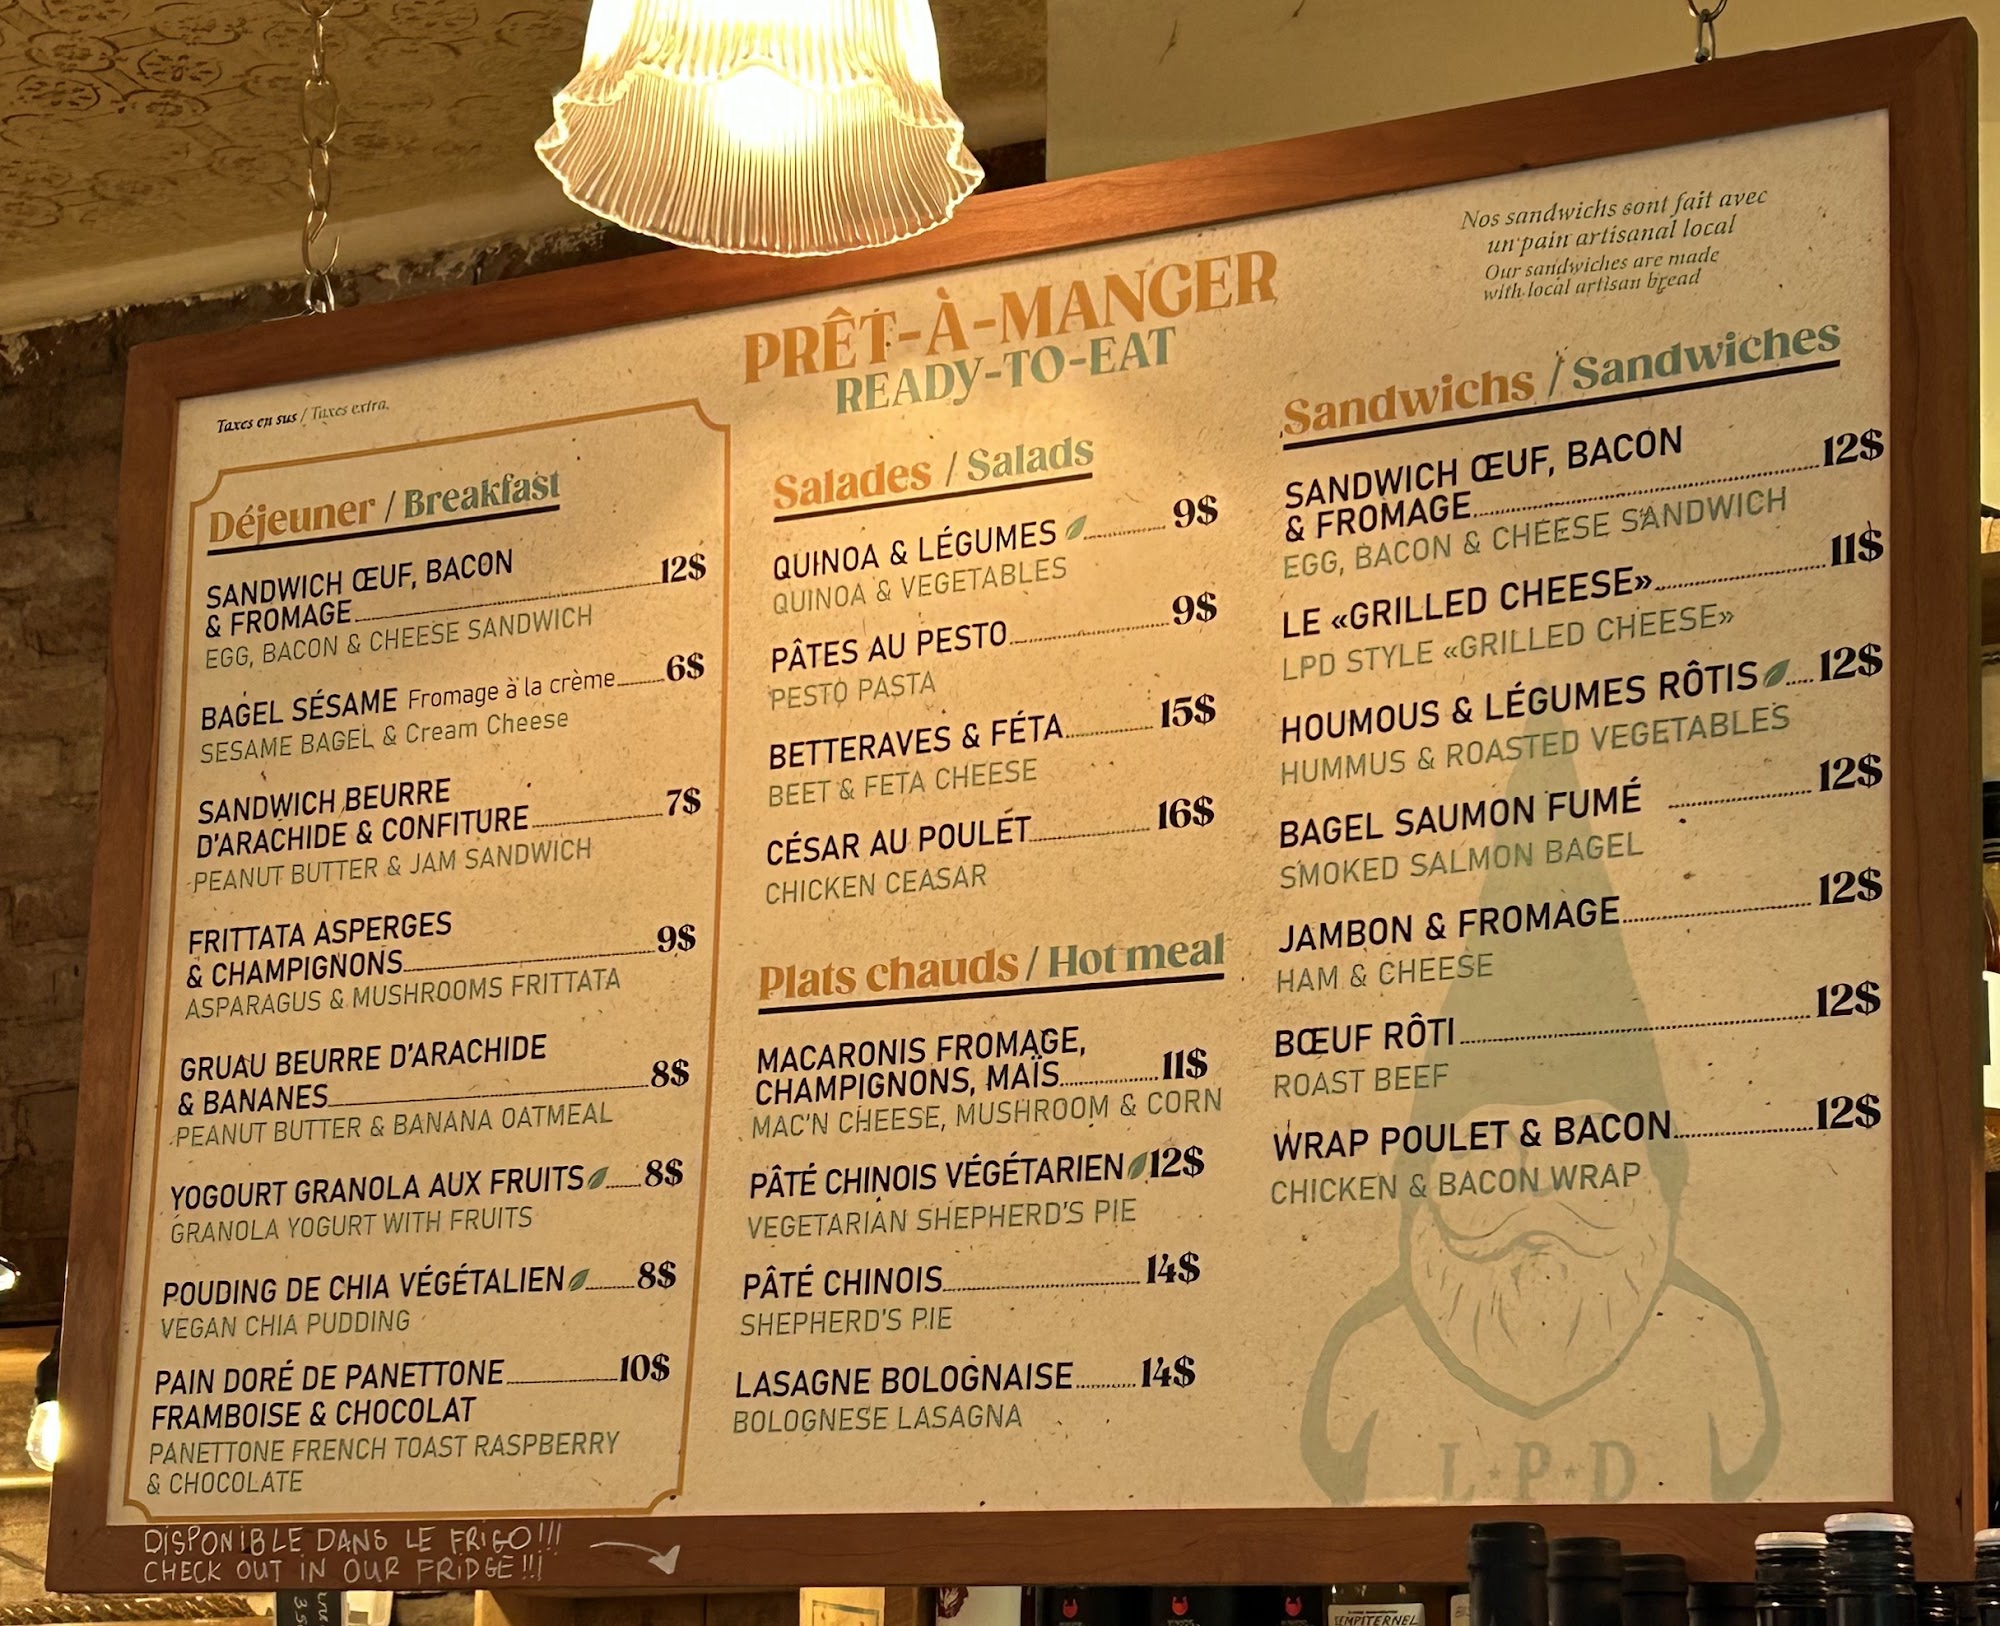 PRÊT-À-MANGER
READY-TO-EAT
Nos sandwichs sont fait avec
un pain artisanal local
Our sandwiches are made
with local artisan bread
Taxes en sus / Taxes extra.
Déjeuner / Breakfast
SANDWICH ŒUF, BACON
& FROMAGE 12$
EGG, BACON & CHEESE SANDWICH
BAGEL SÉSAME Fromage à la crème 6$
SESAME BAGEL & Cream Cheese
SANDWICH BEURRE
D'ARACHIDE & CONFITURE 7$
PEANUT BUTTER & JAM SANDWICH
FRITTATA ASPERGES
& CHAMPIGNONS 9$
ASPARAGUS & MUSHROOMS FRITTATA
GRUAU BEURRE D'ARACHIDE
& BANANES 8$
PEANUT BUTTER & BANANA OATMEAL
YOGOURT GRANOLA AUX FRUITS 8$
GRANOLA YOGURT WITH FRUITS
POUDING DE CHIA VÉGÉTALIEN 8$
VEGAN CHIA PUDDING
PAIN DORÉ DE PANETTONE 10$
FRAMBOISE & CHOCOLAT
PANETTONE FRENCH TOAST RASPBERRY
& CHOCOLATE
Salades / Salads
QUINOA & LÉGUMES 9$
QUINOA & VEGETABLES
PÂTES AU PESTO 9$
PESTO PASTA
BETTERAVES & FÉTA 15$
BEET & FETA CHEESE
CÉSAR AU POULET 16$
CHICKEN CEASAR
Plats chauds / Hot meal
MACARONIS FROMAGE,
CHAMPIGNONS, MAÏS 11$
MAC'N CHEESE, MUSHROOM & CORN
PÂTÉ CHINOIS VÉGÉTARIEN 12$
VEGETARIAN SHEPHERD'S PIE
PÂTÉ CHINOIS 14$
SHEPHERD'S PIE
LASAGNE BOLOGNAISE 14$
BOLOGNESE LASAGNA
Sandwichs / Sandwiches
SANDWICH ŒUF, BACON
& FROMAGE 12$
EGG, BACON & CHEESE SANDWICH
LE «GRILLED CHEESE» 11$
LPD STYLE «GRILLED CHEESE»
HOUMOUS & LÉGUMES RÔTIS 12$
HUMMUS & ROASTED VEGETABLES
BAGEL SAUMON FUMÉ 12$
SMOKED SALMON BAGEL
JAMBON & FROMAGE 12$
HAM & CHEESE
BŒUF RÔTI 12$
ROAST BEEF
WRAP POULET & BACON 12$
CHICKEN & BACON WRAP
L*P*D
DISPONIBLE DANS LE FRIGO!!!
CHECK OUT IN OUR FRIDGE!!!